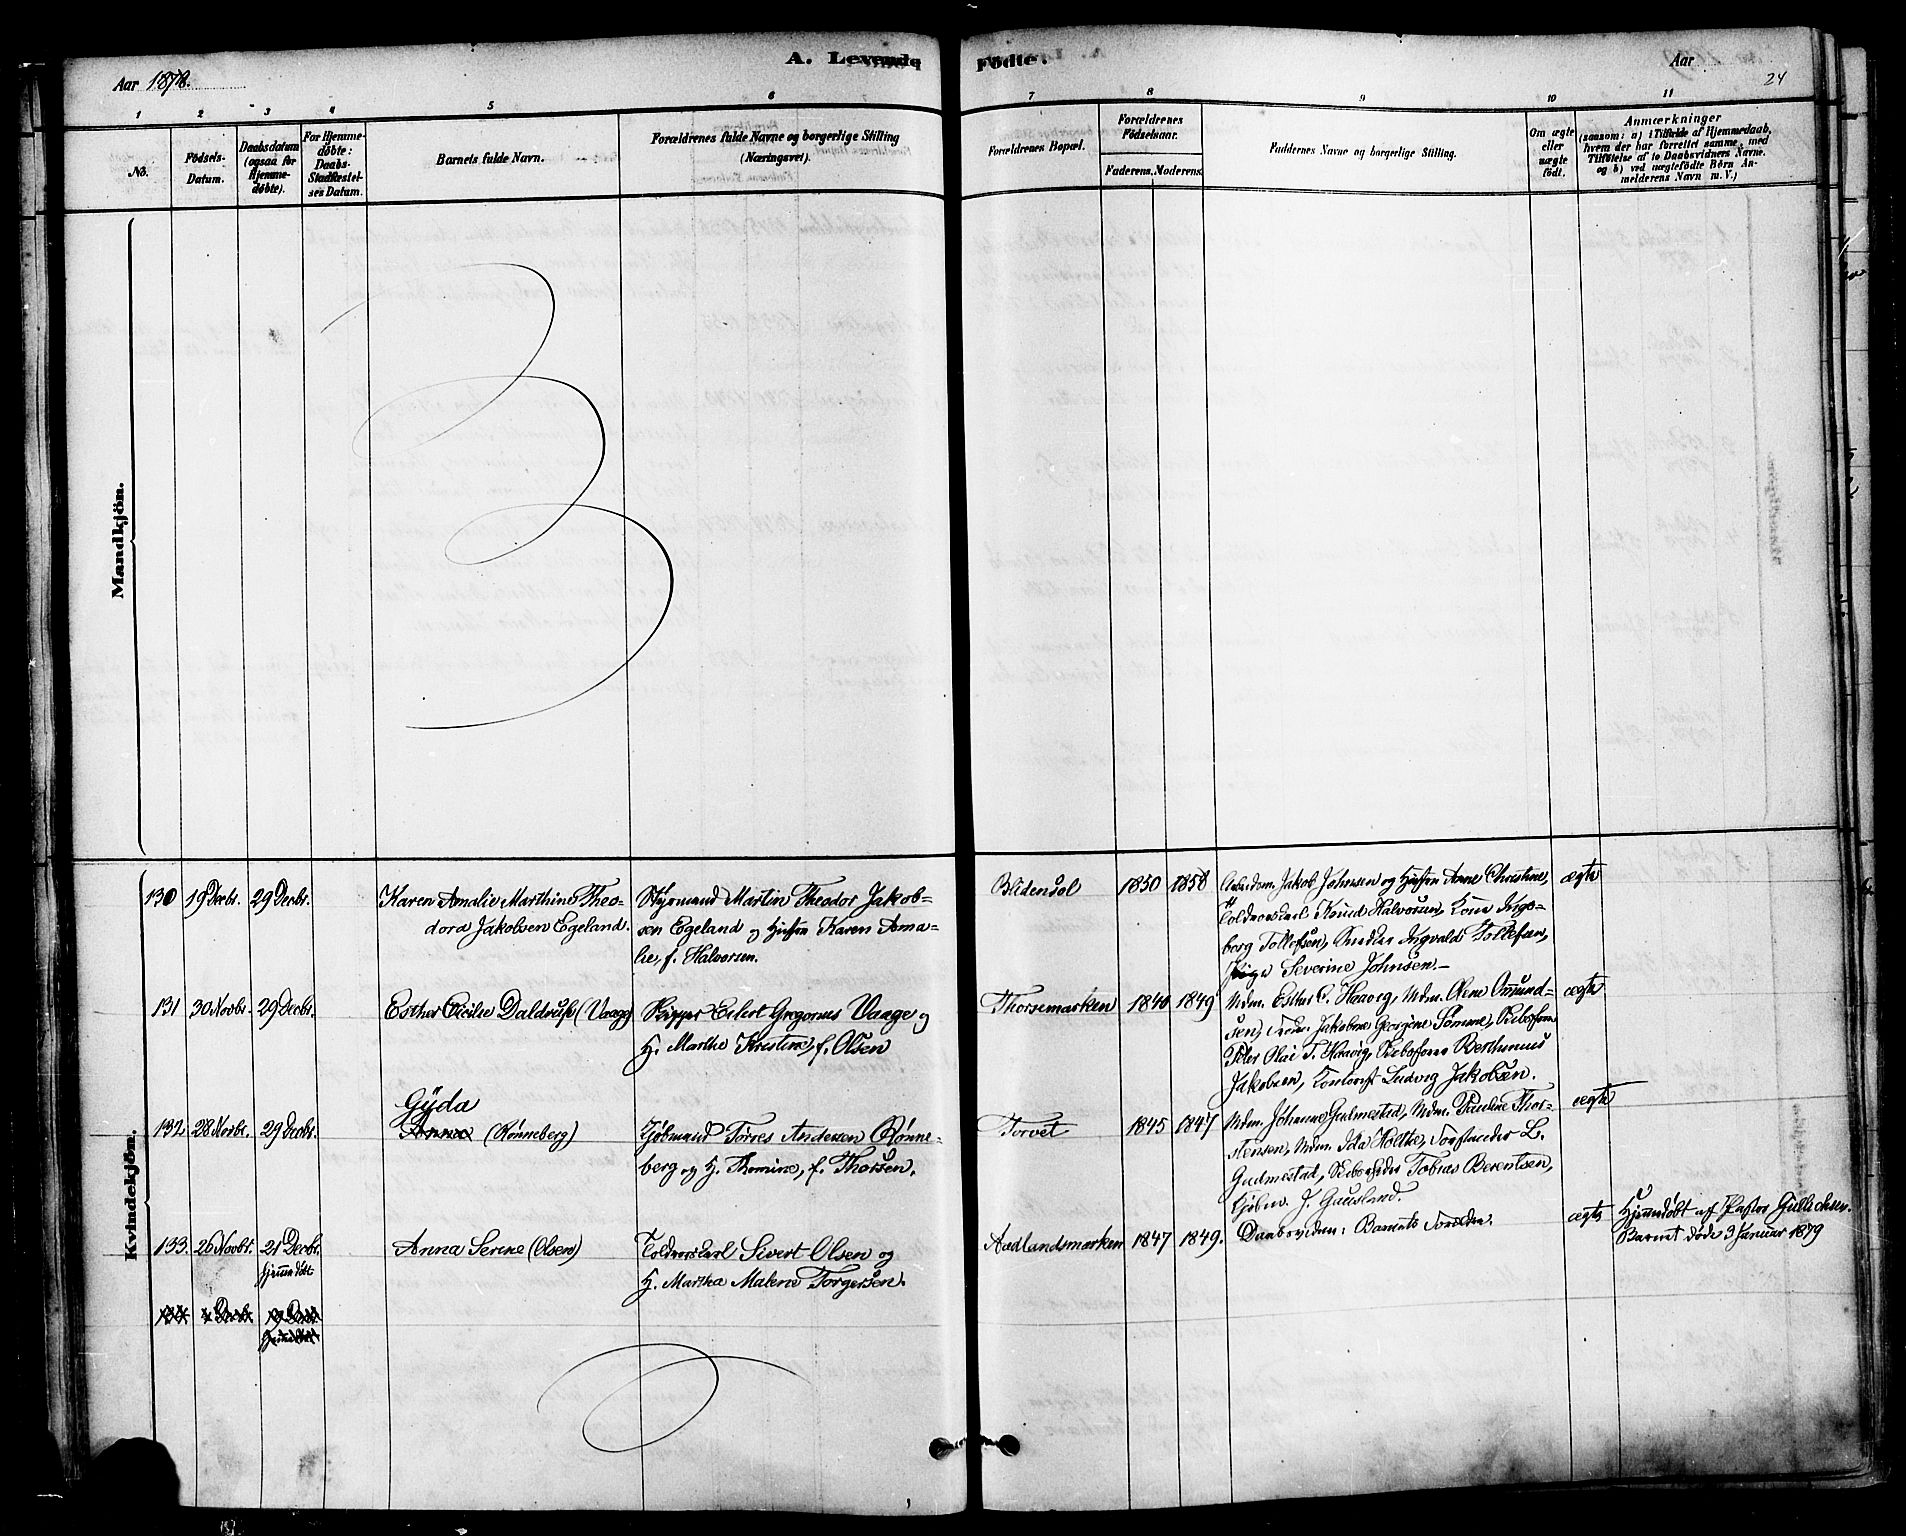 Aar 1878.
A. Levende Fødte.
Aar
24
1 2 3 4 5 6 7 8 9 10 11
No.
Fødsels-
Datum.
Daabsdatum
(ogsaa for
Hjemme-
døbte).
For Hjemme-
døbte:
Daabs-
Stadfæstel-
ses Datum.
Barnets fulde Navn.
Forældrenes fulde Navne og borgerlige Stilling
(Næringsvei).
Forældrenes Bopæl.
Forældrenes
Fødselsaar.
Faderens. Moderens.
Faddernes Navne og borgerlige Stilling.
Om ægte
eller
uægte
født.
Anmærkninger
(saasom: a) i Tilfælde af Hjemmedaab,
hvem der har forrettet samme, med
Tilføielse af to Daabsvidners Navne.
og b) ved uægtefødte Børn An-
melderens Navn m. V.)
Mandkjön.
Kvindekjön.
130 19 Decbr. 29 Decbr.
Karen Amalie Marthine Theo-
dora Jakobsen Egeland.
Styrmand Martin Theodor Jakob-
sen Egeland og Hustru Karen Ama-
lie, f. Halvorsen.
Blidensol 1850 1858
Arbeidsm. Jakob Johnsen og Hustru Anne Christine,
Toldrorskarl Knud Halvorsen, Kone Inge-
borg Tollefsen, Snedker Ingvald Tollefsen,
Pige Severine Johnsen.
ægte
131 30 Novbr. 29 Decbr.
Esther Cecilie Daldruf (Vaage)
Skipper Eilert Gregorius Vaage og
H. Marthe Kristine, f. Olsen
Thorsemarken 1840 1849
Mdm. Esther C. Haavig, Mdm. Olene Omund-
sen, Jakobine Georgine Sømme, Skibsfører
Peter Olai T. Haavig, Skibsfører Berthinius
Jakobsen, Kontorist Ludvig Jakobsen.
ægte
132 28 Novbr. 29 Decbr.
Gÿda
Anna (Rønneberg)
Kjøbmand Tørres Andersen Rønne-
berg og H. Thomine, f. Thorsen.
Torvet 1845 1847
Mdm. Johanne Gudmestad, Mdm. Pauline Thor-
stensen, Mdm. Ida Holthe, L.
Gudmestad, Skibsreder Tobias Berentsen,
Kjøbm. J. Gausland.
ægte
133. 26 Novbr. 21 Decbr.
hjemmedøbt
Anna Serine (Olsen)
Toldrorskarl Sivert Olsen og
H. Martha Malene Torgersen.
Aadlandsmarken 1847 1849.
Daabsvidner: Barnets Forældre.
ægte
Hjemmedøbt af Pastor Gullichsen.
Barnet døde 3 Januar 1879